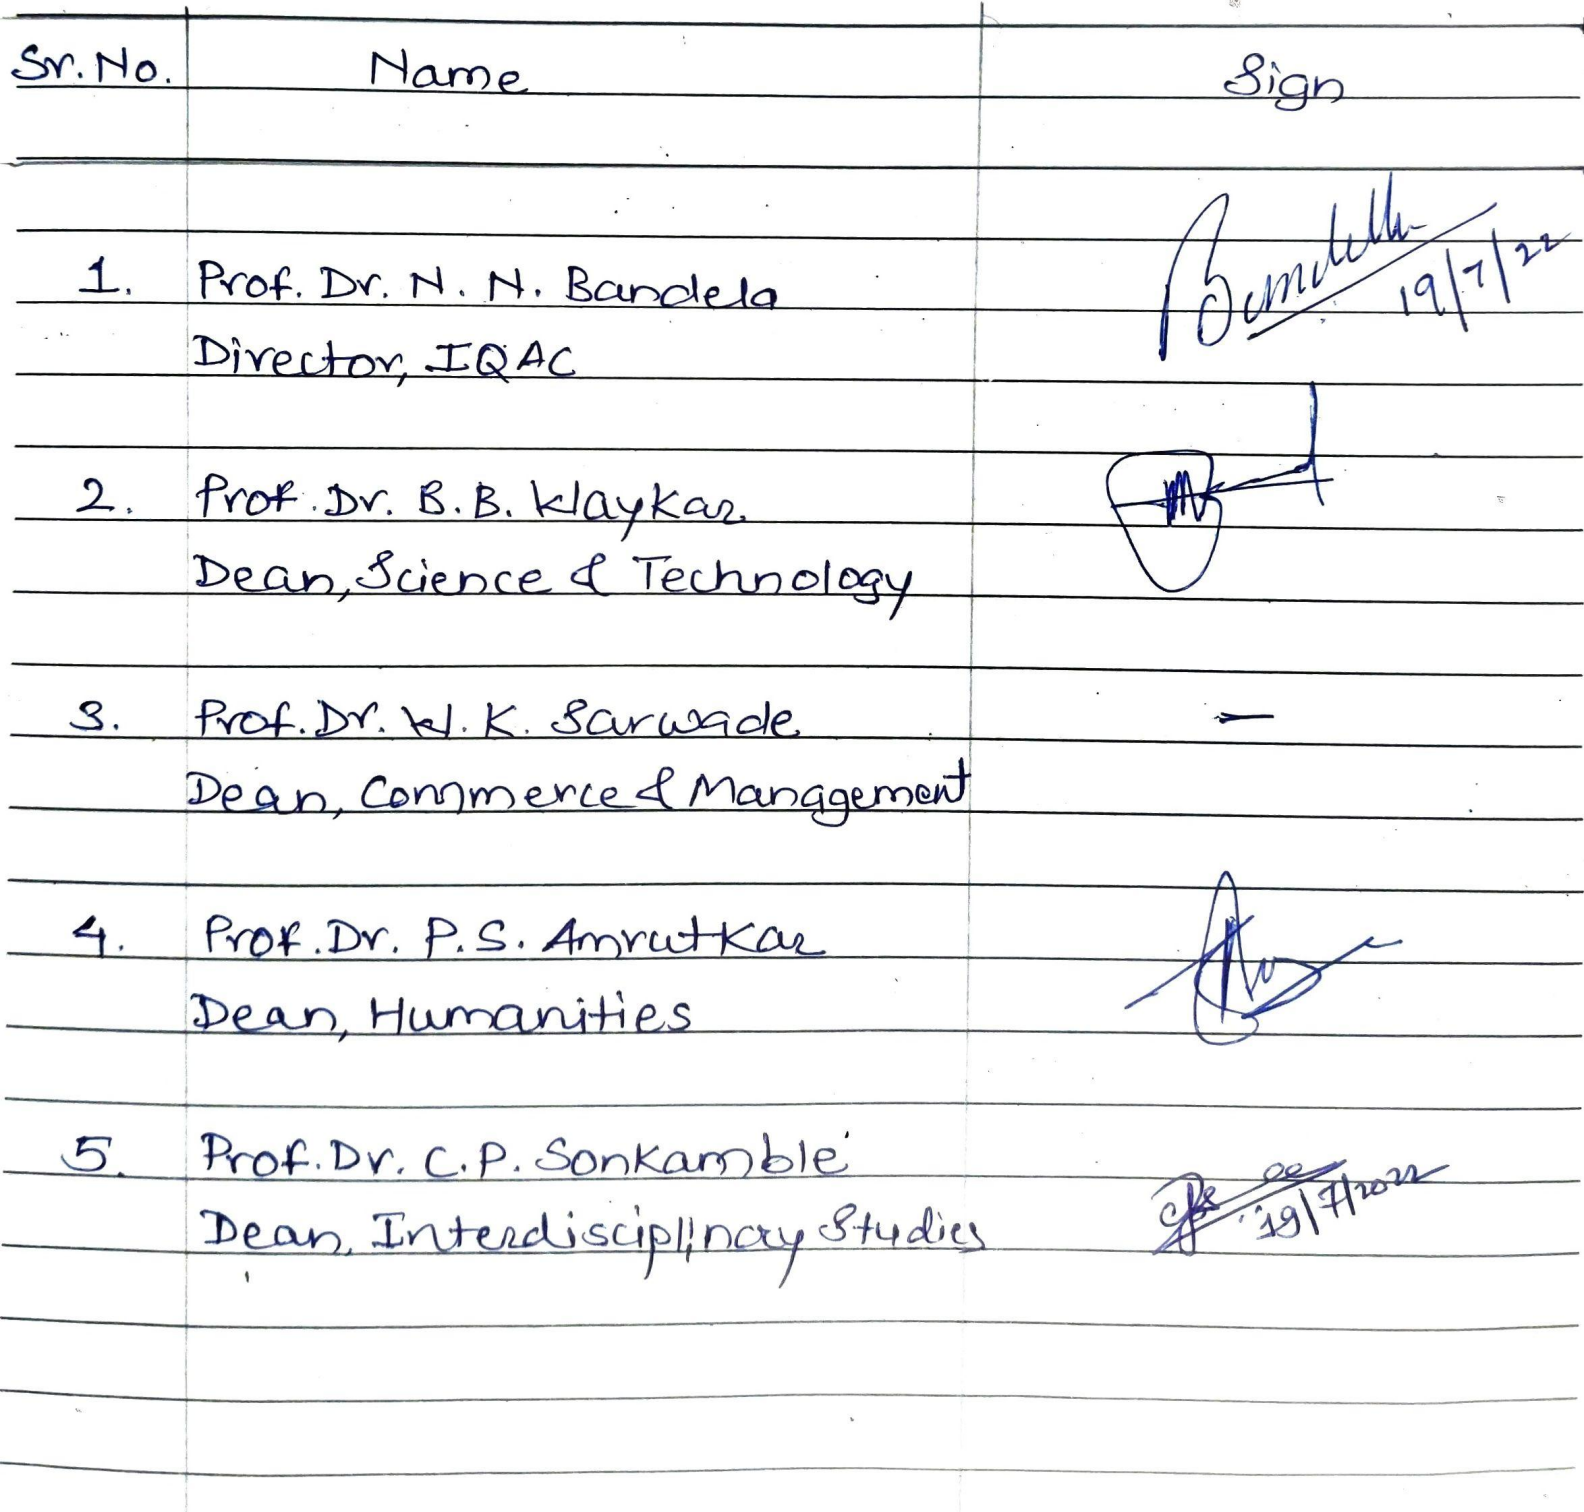 Sr. No. Name Sign
1. Prof. Dr. N. N. Bandela Bandela 19/7/22
Director, IQAC
2. Prof. Dr. B. B. Waykar
Dean, Science & Technology
3. Prof. Dr. W. K. Sarwade –
Dean, Commerce & Management
4. Prof. Dr. P. S. Amrutkar
Dean, Humanities
5. Prof. Dr. C. P. Sonkamble 19/7/2022
Dean, Interdisciplinary Studies